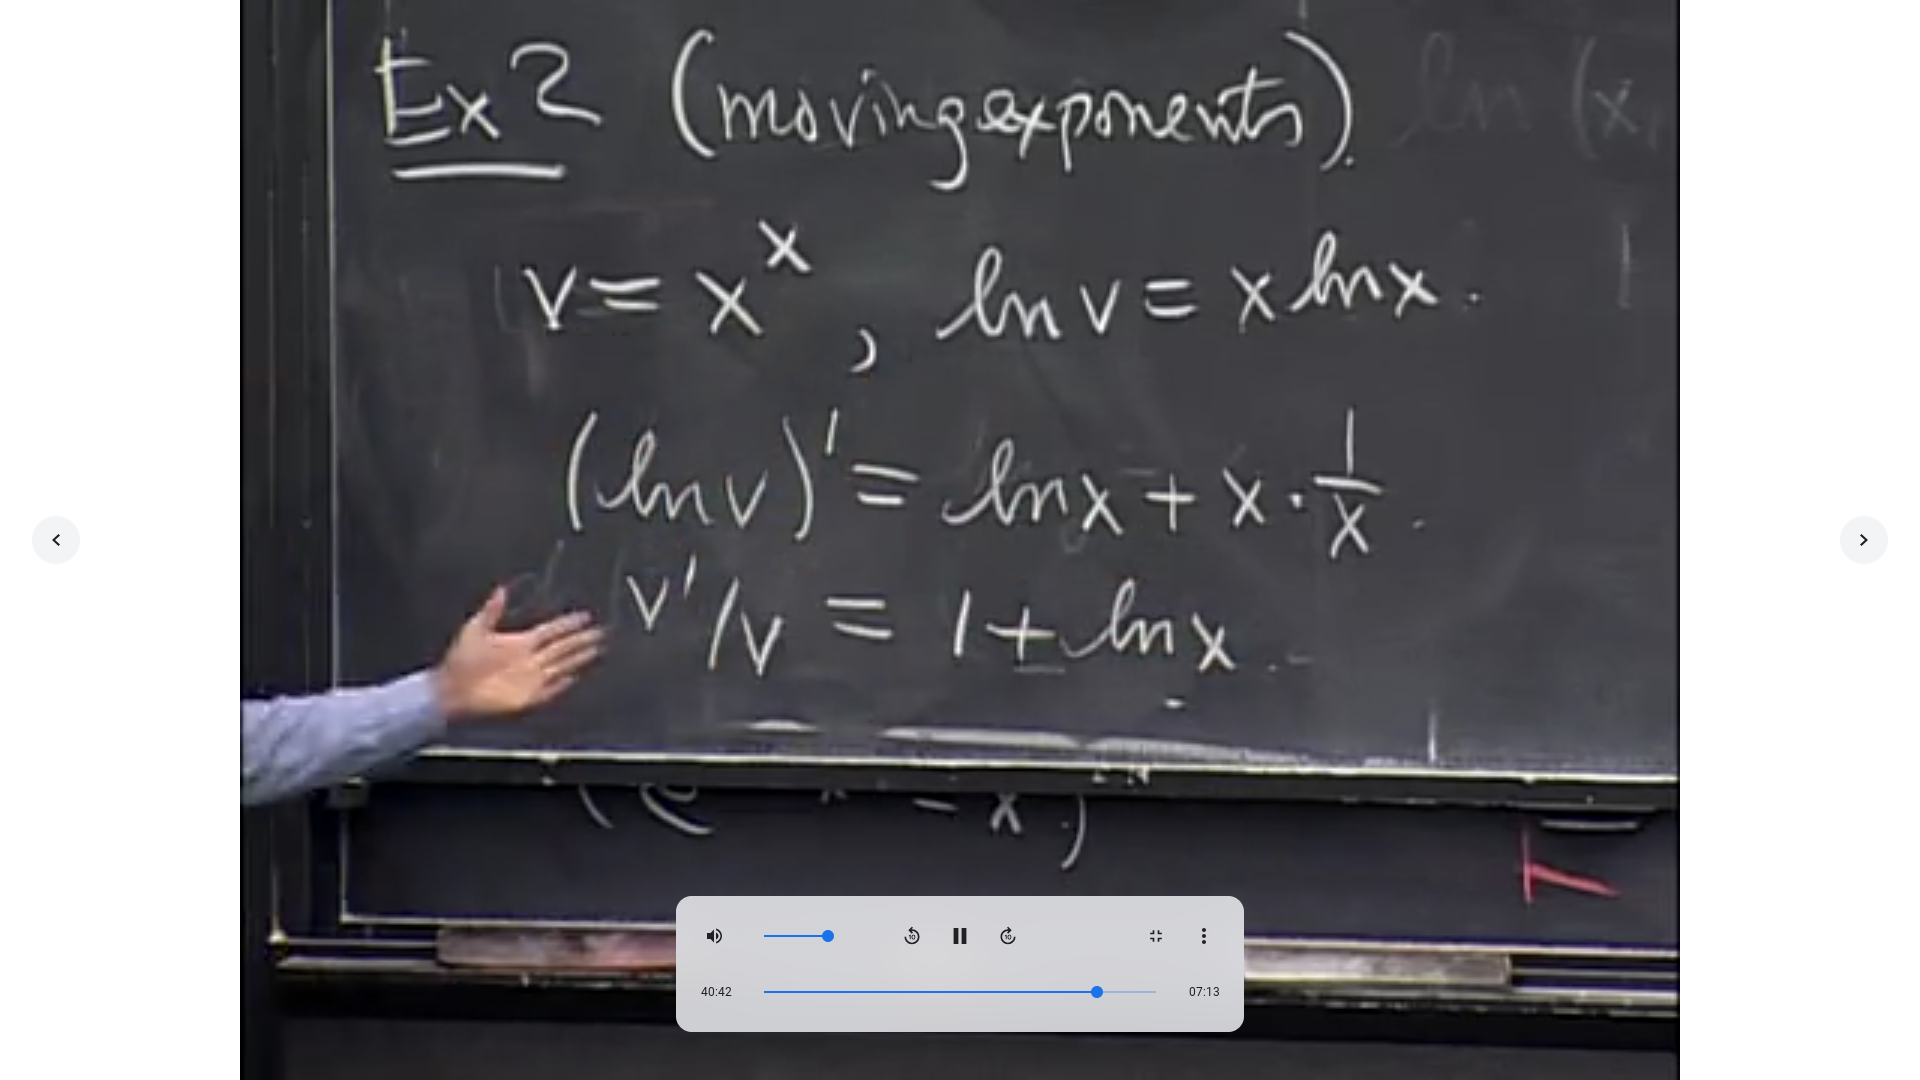 Ex 2 (moving exponents). ln (x,
v = x^x , ln v = x ln x.
(ln v)' = ln x + x · 1/x .
v'/v = 1 + ln x.
- x )
10 10
40:42 07:13